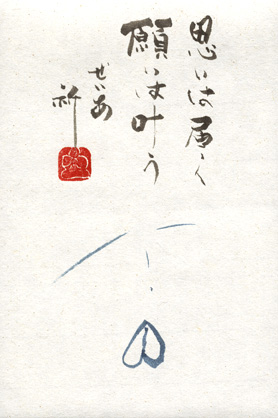 思いは届く
願いは叶う
ぜいあ
祈